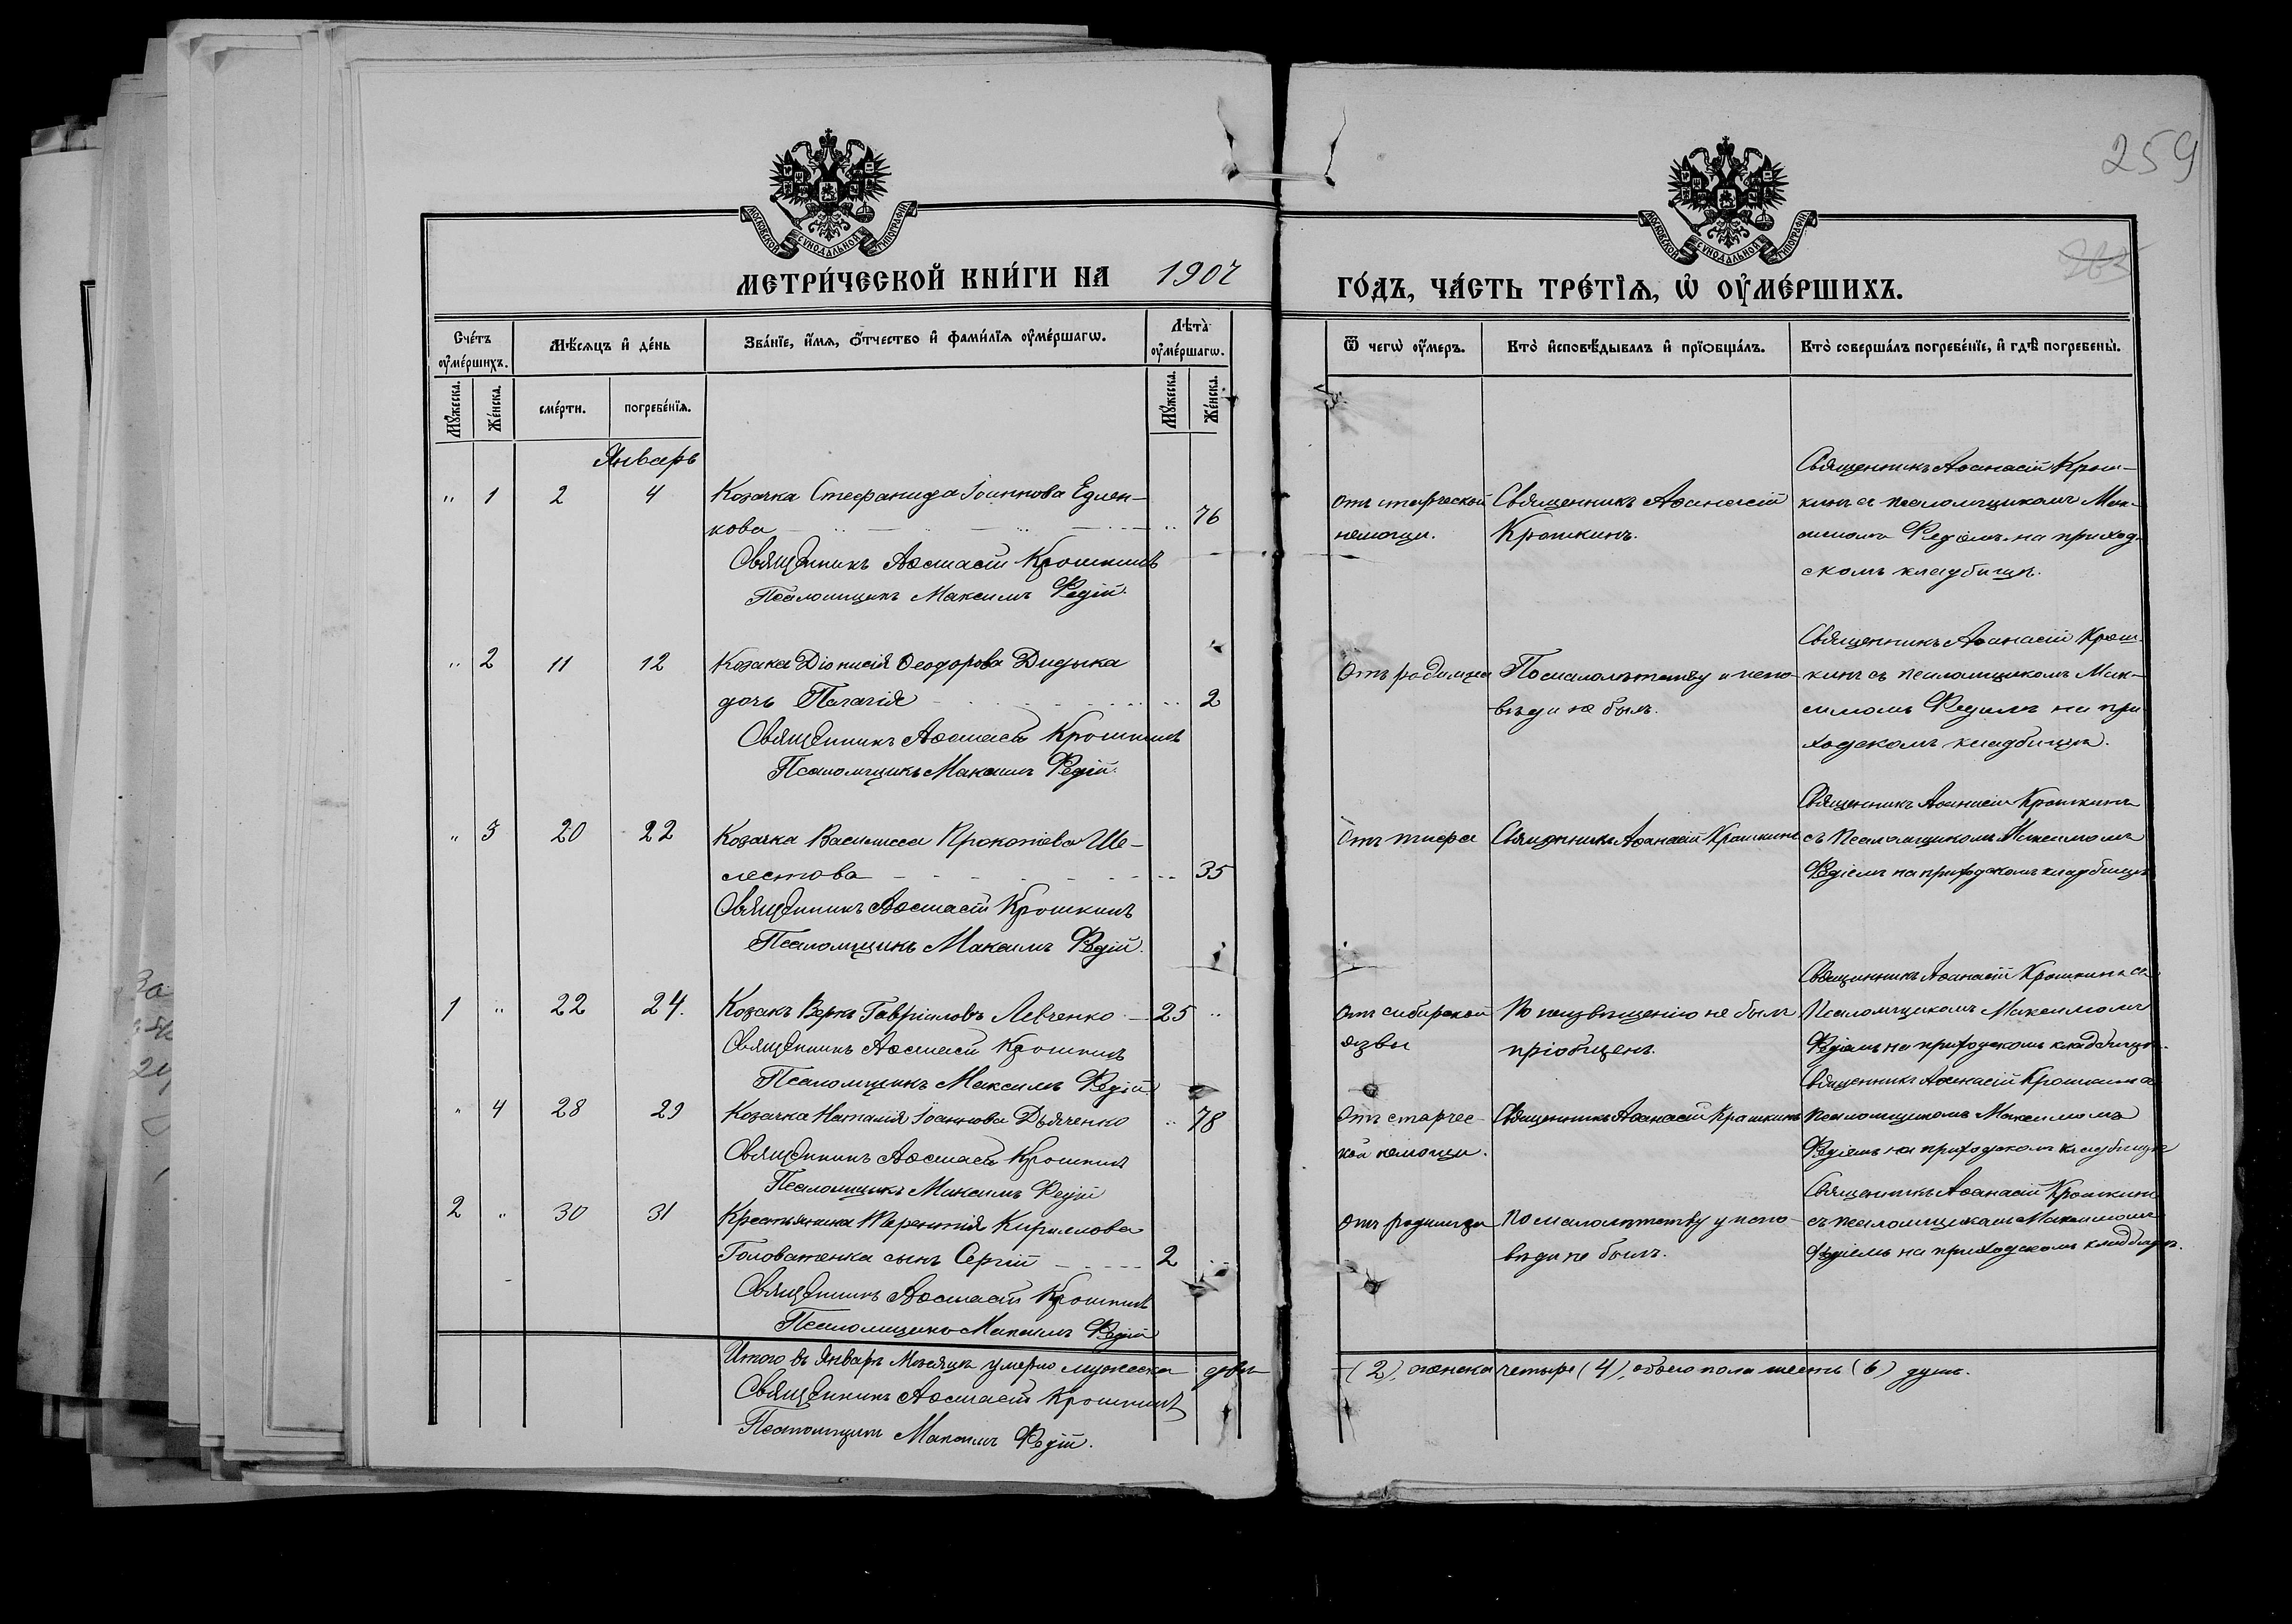 259
МОСКОВСКОЙ СѴНОДАЛЬНОЙ ТИПОГРАФІИ
МОСКОВСКОЙ СѴНОДАЛЬНОЙ ТИПОГРАФІИ
МЕТРИ́ЧЕСКОЙ КНИ́ГИ НА 1907 ГО́ДЪ, ЧА́СТЬ ТРЕ́ТІѦ, Ѡ҆ ОУ҆МЕ́РШИХЪ.
Сче́тъ оу҆ме́ршихъ.
Мѣ́сяцъ и҆ де́нь
Зва́нїе, и҆́мѧ, ѻ҆́тчество и҆ фами́лїѧ оу҆ме́ршагѡ.
Лѣта̀ оу҆ме́ршагѡ.
Ѿ чегѡ̀ оу҆́меръ.
Кто̀ и҆сповѣ́дывалъ и҆ прїѡбща́лъ.
Кто̀ соверша́лъ погребе́нїе, и҆ гдѣ̀ погребены̀.
Мꙋ́жеска.
Же́нска.
сме́рти.
погребе́нїѧ.
Мꙋ́жеска.
Же́нска.
Январь
" 1 2 4 Козачка Стефанида Іоаннова Едлен-
кова " 76
Священникъ Аѳанасій Крошкинъ
Псаломщикъ Максимъ Редій.
Отъ старческой
немощи.
Священникъ Аѳанасій
Крошкинъ.
Священникъ Аѳанасій Крош-
кинъ съ псаломщикомъ Мак-
симомъ Редіемъ на приход-
скомъ кладбищѣ.
" 2 11 12 Козака Діонисія Ѳеодорова Дидыка
дочь Пелагія " 2
Священникъ Аѳанасій Крошкинъ
Псаломщикъ Максимъ Редій.
Отъ родимца
По малолѣтству у испо-
вѣди не былъ.
Священникъ Аѳанасій Крош-
кинъ съ псаломщикомъ Мак-
симомъ Редіемъ на при-
ходскомъ кладбищѣ.
" 3 20 22 Козачка Василисса Прокопіева Ше-
лестова " 35
Священникъ Аѳанасій Крошкинъ
Псаломщикъ Максимъ Редій.
Отъ тифа
Священникъ Аѳанасій Крошкинъ
Священникъ Аѳанасій Крошкинъ
съ Псаломщикомъ Максимомъ
Редіемъ на приходскомъ кладбищѣ
1 " 22 24. Козакъ Гавріиловъ Левченко 25 "
Священникъ Аѳанасій Крошкинъ
Псаломщикъ Максимъ Редій
Отъ сибирской
язвы
По неизвѣщенію не былъ
пріобщенъ.
Священникъ Аѳанасій Крошкинъ съ
Псаломщикомъ Максимомъ
Редіемъ на приходскомъ кладбищѣ.
" 4 28 29 Козачка Наталія Іоаннова Дьяченко " 78
Священникъ Аѳанасій Крошкинъ
Псаломщикъ Максимъ Редій
Отъ старчес-
кой немощи.
Священникъ Аѳанасій Крошкинъ
Священникъ Аѳанасій Крошкинъ съ
Псаломщикомъ Максимомъ
Редіемъ на приходскомъ кладбищѣ
2 " 30 31 Крестьянина Терентія Кириллова
Головатенка сынъ Сергій 2 "
Священникъ Аѳанасій Крошкинъ
Псаломщикъ Максимъ Редій
Отъ родимца
По малолѣтству у испо-
вѣди не былъ.
Священникъ Аѳанасій Крошкинъ
съ псаломщикомъ Максимомъ
Редіемъ на приходскомъ кладбищѣ.
Итого въ Январѣ Мѣсяцѣ умерло мужеска два (2), женска четыре (4), обоего пола шесть (6) душъ.
Священникъ Аѳанасій Крошкинъ
Псаломщикъ Максимъ Редій.